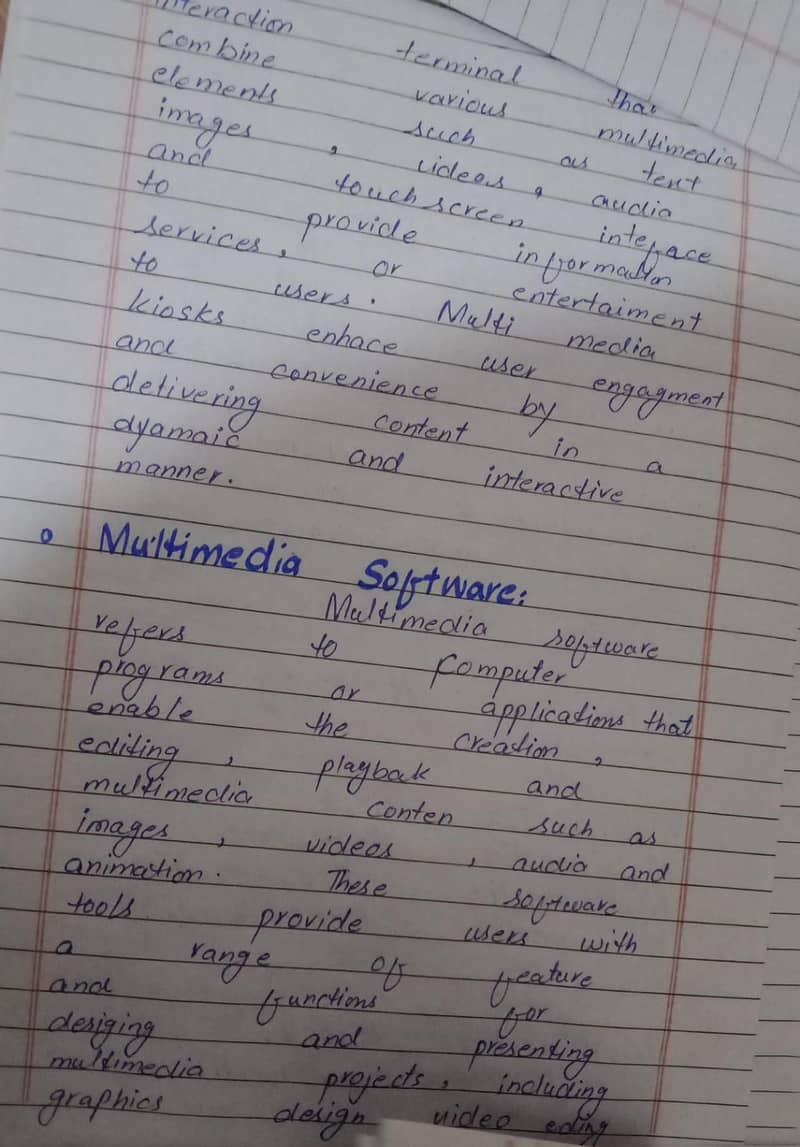 interaction terminal that
combine various multimedia
elements such as text
images , videos , audio
and touch screen inteface
to provide information
services, or entertaiment
to users. Multi media
kiosks enhace user engagment
and convenience by
delivering content in a
dyamaic and interactive
manner.
Multimedia Software:
Multimedia software
refers to Computer
programs or applications that
enable the creation ,
editing , playbak and
multimedia conten such as
images , videos , audio and
animation. These software
tools provide users with
a range of feature
and functions for
desiging and presenting
multimedia projects, including
graphics design video eding